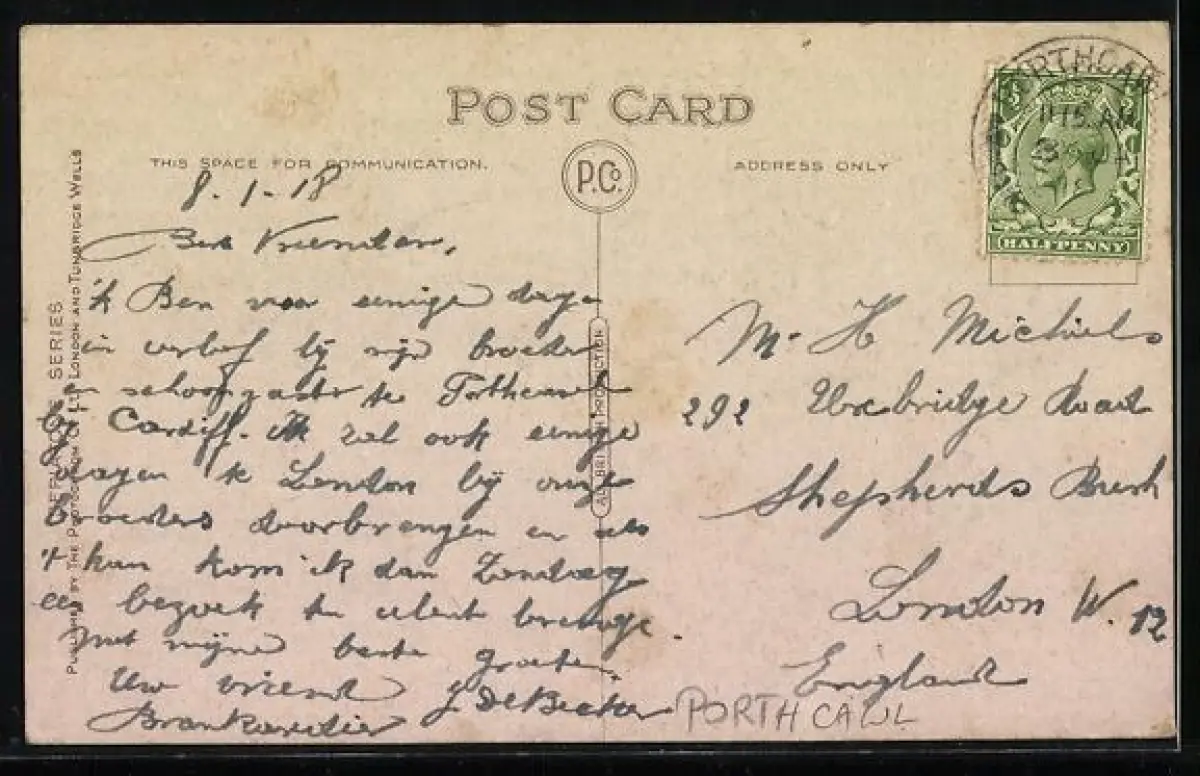 POST CARD
THIS SPACE FOR COMMUNICATION.
P.Co.
ADDRESS ONLY
PORTHCAWL
11 15 AM
HALFPENNY
8-1-18
Vrienden,
'k Ben voor eenige dage
in verlof bij mijn broeder
en te
bij Cardiff. Ik zal ook eenige
dagen te London bij onze
broeders doorbrengen en als
't kan kom ik dan Zondag
een bezoek ten brenge.
Met mijne beste groeten,
Uw vriend J De Becker
Brankardier
Mr H Michiels
292 Uxbridge Road
Shepherds Bush
London W. 12
England
PORTHCAWL
SERIES
PUBLISHED BY THE PHOTOCHROM CO. LTD. LONDON AND TUNBRIDGE WELLS
PRODUCTION